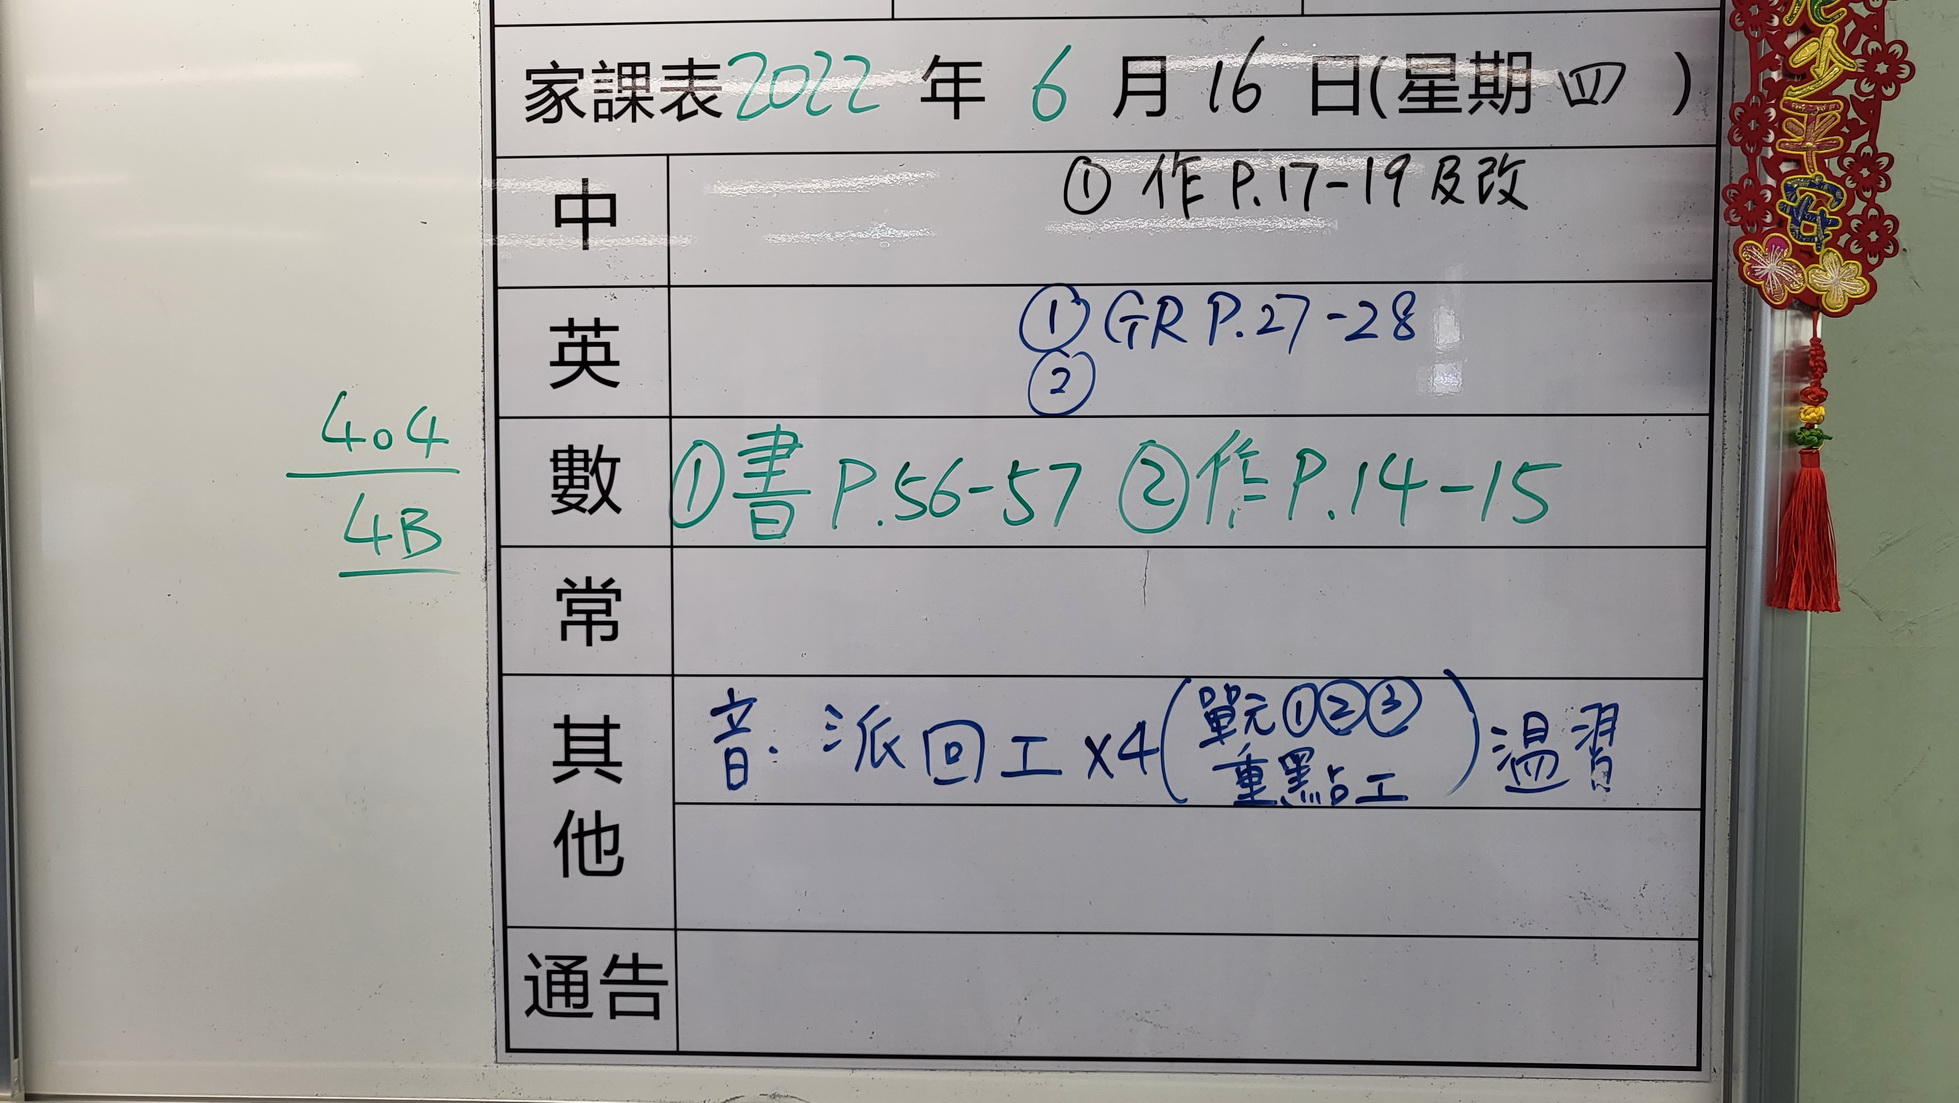 家課表2022年6月16日(星期四)
中 ①作P.17-19及改
英 ①GR P.27-28
②
數 ①書P.56-57 ②作P.14-15
常
其他 音:派回工x4(單元①②③重點工)溫習
通告
404
4B
平安